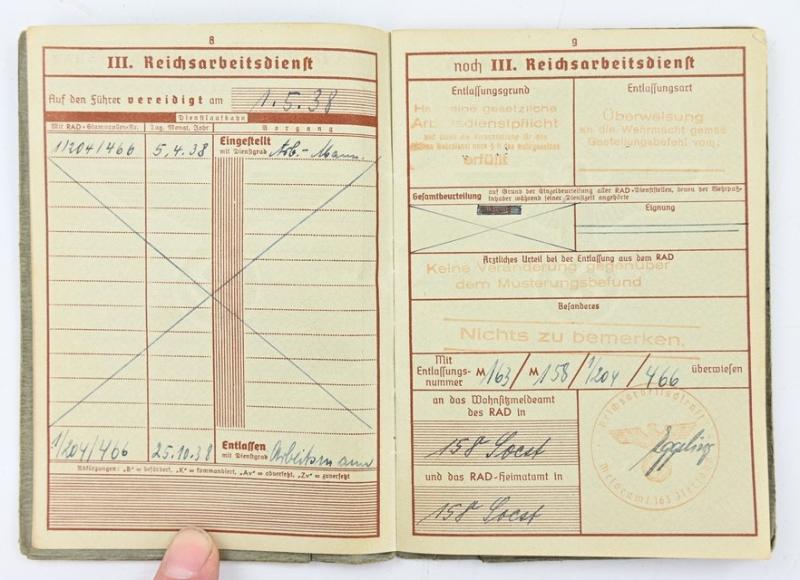 8
III. Reichsarbeitsdienst
Auf den Führer vereidigt am 1.5.38
Dienstlaufbahn
Mit RAD-Stammrollen-Nr. Tag, Monat, Jahr Vorgang
1/204/466 5.4.38 Eingestellt mit Dienstgrad Arb.-Mann
1/204/466 25.10.38 Entlassen mit Dienstgrad Arbeitsmann
Abkürzungen: „B“ = befördert, „K“ = kommandiert, „Av“ = abversetzt, „Zv“ = zuversetzt
9
noch III. Reichsarbeitsdienst
Entlassungsgrund
Hat seine gesetzliche
Arbeitsdienstpflicht
erfüllt
Entlassungsart
Überweisung
an die Wehrmacht gemäß
Gestellungsbefehl vom:
Gesamtbeurteilung auf Grund der Einzelbeurteilung aller RAD-Dienststellen, denen der Wehrpaß-
inhaber während seiner Dienstzeit angehörte
Eignung
Ärztliches Urteil bei der Entlassung aus dem RAD
Keine Veränderung gegenüber
dem Musterungsbefund
Besonderes
Nichts zu bemerken.
Mit Entlassungs-
nummer M 163 / M 158 / 1/204 / 466 überwiesen
an das Wohnsitzmeldeamt
des RAD in
158 Soest
und das RAD-Heimatamt in
158 Soest
Reichsarbeitsdienst
Meldeamt 163